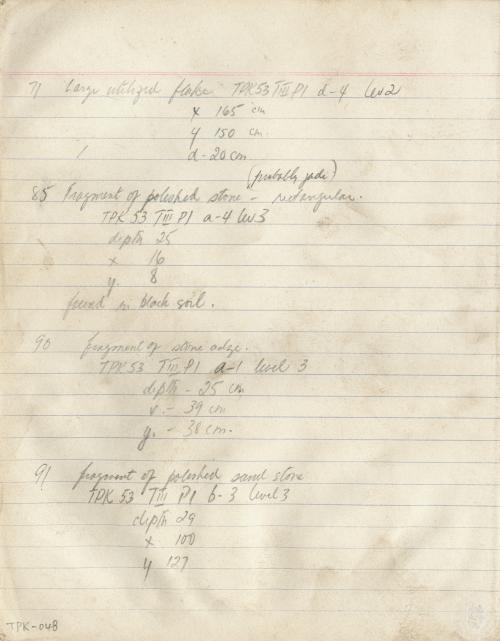 71 Large utilized flake TPK53 TIII P1 d-4 lev2
x 165 cm
y 150 cm
d-20cm
(probably jade)
85 Fragment of polished stone - rectangular.
TPK 53 TIII P1 a-4 lev3
depth 25
x 16
y. 8
found in black soil.
90 fragment of stone adze.
TPK53 TIII P1 a-1 level 3
depth - 25 cm
x. - 39 cm
y. - 38 cm.
91 fragment of polished sand stone
TPK 53 TIII P1 b-3 level 3
depth 29
x 100
y 127
TPK-048